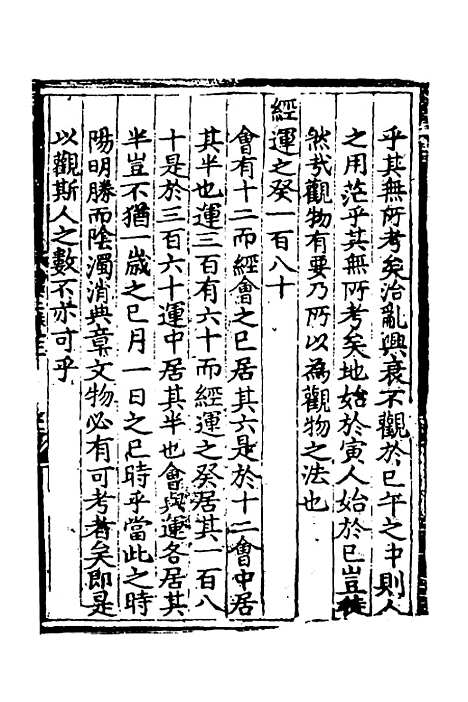 乎其無所考矣治亂興衰不觀於巳午之中則人
之用茫乎其無所考矣地始於寅人始於巳豈徒
然㢤觀物有要乃所以為觀物之法也
經運之癸一百八十
會有十二而經會之巳居其六是於十二會中居
其半也運三百有六十而經運之癸居其一百八
十是於三百六十運中居其半也會與運各居其
半豈不猶一歲之巳月一日之巳時乎當此之時
陽明勝而陰濁消典章文物必有可考者矣即是
以觀斯人之數不亦可乎